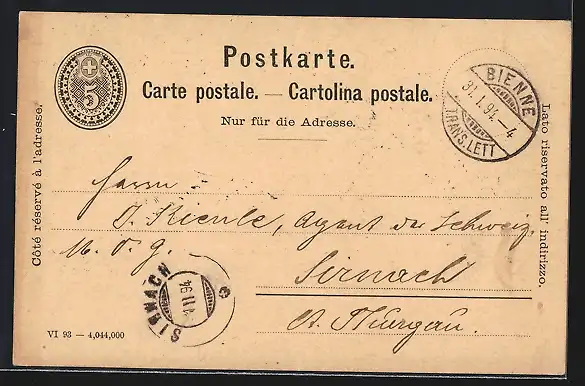 Postkarte.
Carte postale. — Cartolina postale.
Nur für die Adresse.
5
BIENNE
31.I.94.-4
TRANS.LETT
Côté réservé à l'adresse.
Lato riservato all' indirizzo.
Herrn
J. Kienle, Agent der Schweiz.
M. V. G.
Sirnach
Ct. Thurgau.
SIRNACH
1 II 94
VI 93 — 4,044,000